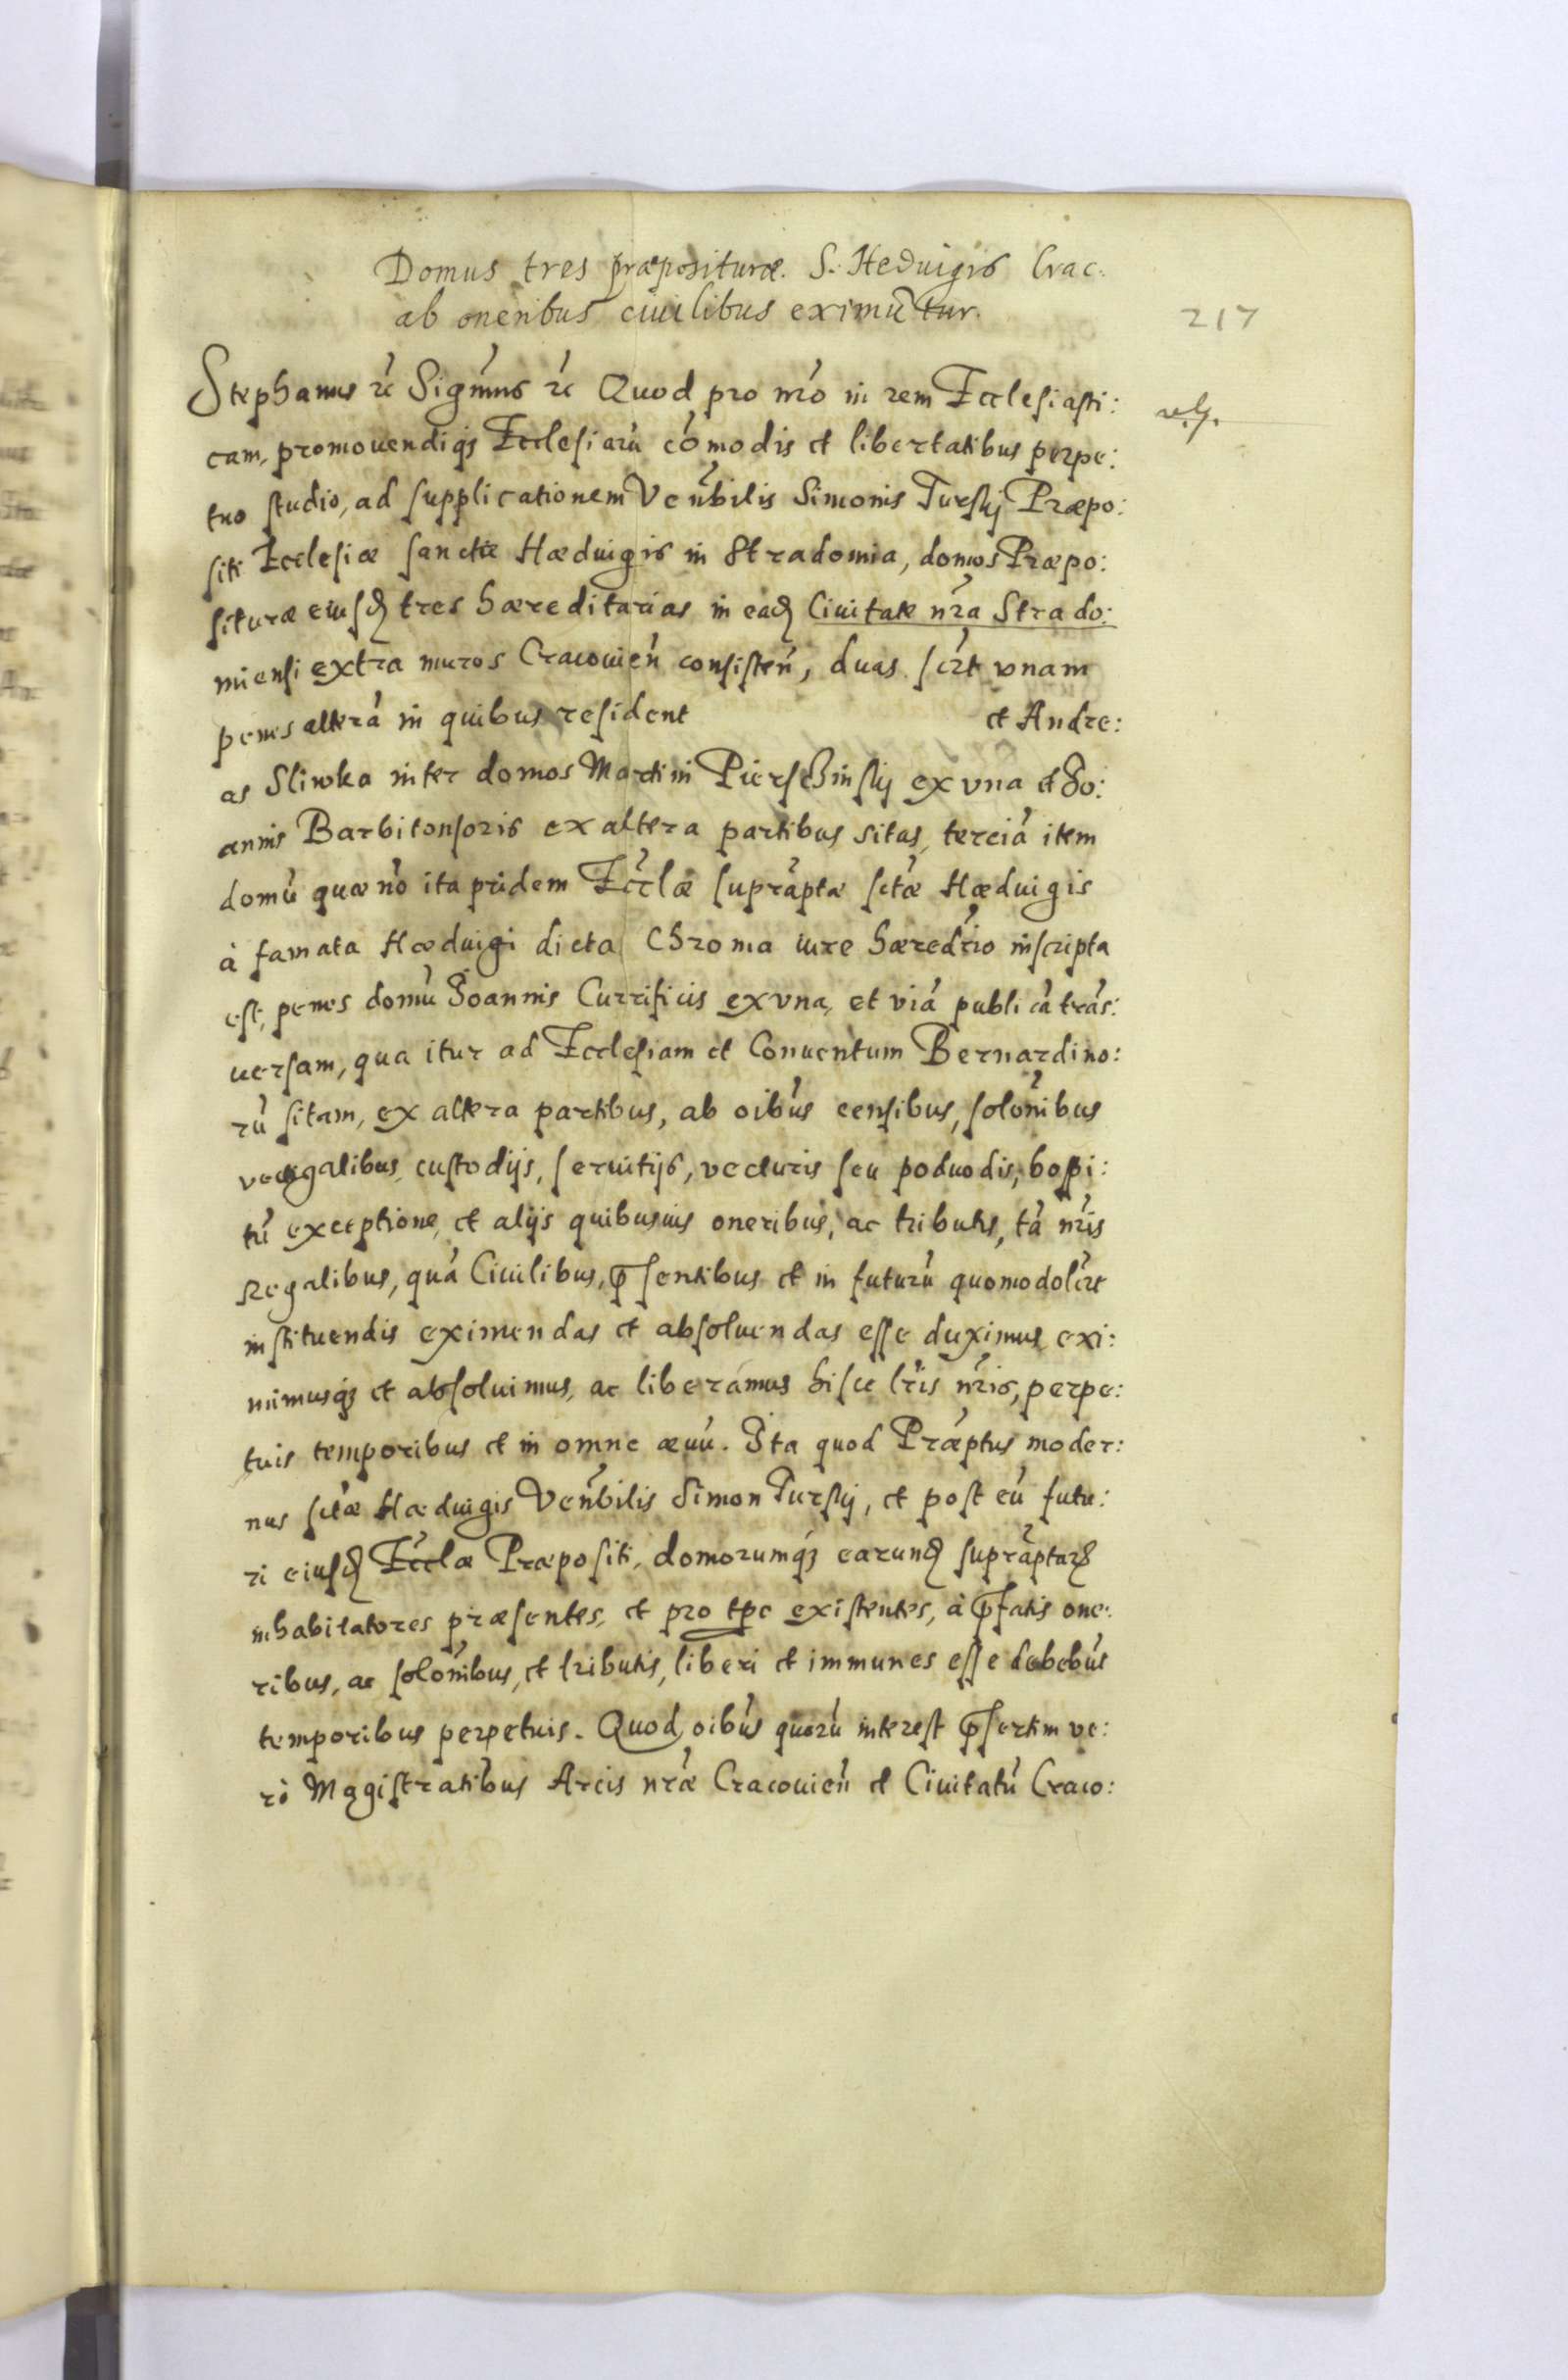 Domus tres præposituræ. S. Heduigis Crac.
ab oneribus ciuilibus eximūtur.
217
Stephanus etc Sigmus etc Quod pro nro in rem Ecclesiasti:
cam, promouendiqs Ecclesiarū cōmodis et libertatibus perpe:
tuo studio, ad supplicationem Venbilis Simonis Turskij Præpo:
siti Ecclesiæ sanctæ Hæduigis in Stradomia, domos Præpo:
situræ eiusd tres hæreditarias in ead Ciuitate nra Strado:
miensi extra muros Cracouien consisten, duas sclt vnam
penes alterā in quibus resident et Andre:
as Sliwka inter domos Martini Pierschinskij ex vna et Jo:
annis Barbitonsoris ex altera partibus sitas, terciā item
domū quæ nō ita pridem Ecclæ supraptæ sctæ Hæduigis
à famata Hæduigi dicta Chroma iure hæredrio inscripta
est, penes domū Joannis Currificis ex vna, et viā publicā trās:
uersam, qua itur ad Ecclesiam et Conuentum Bernardino:
rū sitam, ex altera partibus, ab oibus censibus, solonibus
vectigalibus, custodijs, seruitijs, vecturis seu poduodis, hospi:
tū exceptione, et alijs quibusuis oneribus, ac tributis, tā nris
Regalibus, quā Ciuilibus, psentibus et in futurū quomodolcet
instituendis eximendas et absoluendas esse duximus, exi:
mimusq et absoluimus, ac liberamus hisce lris nris, perpe:
tuis temporibus et in omne æuū. Ita quod Præptus moder:
nus sctæ Hæduigis Venbilis Simon Turskij, et post eū futu:
ri eiusd Ecclæ Præpositi, domorumq earund supraptar
inhabitatores præsentes, et pro tpe existentes, à pfatis one:
ribus, ac solonibus, et tributis, liberi et immunes esse debebūt
temporibus perpetuis. Quod oibus quorū interest psertim ve:
rò Magistratibus Arcis nræ Cracouien et Ciuitatū Craco: